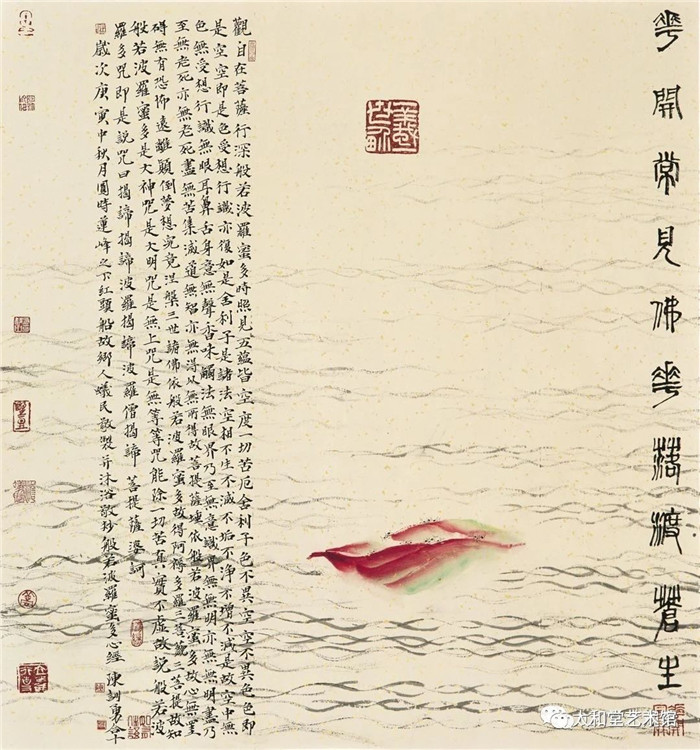 華開常見佛華落渡蒼生
觀自在菩薩行深般若波羅蜜多時照見五蘊皆空度一切苦厄舍利子色不異空空不異色色即
是空空即是色受想行識亦復如是舍利子是諸法空相不生不滅不垢不淨不增不減是故空中無
色無受想行識無眼耳鼻舌身意無聲香味觸法無眼界乃至無意識界無無明亦無無明盡乃
至無老死亦無老死盡無苦集滅道無智亦無得以無所得故菩提薩埵依般若波羅蜜多故心無罣
礙無有恐怖遠離顛倒夢想究竟涅槃三世諸佛依般若波羅蜜多故得阿耨多羅三藐三菩提故知
般若波羅蜜多是大神咒是大明咒是無上咒是無等等咒能除一切苦真實不虛故說般若波
羅多咒即是說咒曰揭諦揭諦波羅揭諦波羅僧揭諦菩提薩婆訶
歲次庚寅中秋月圓時蓮峰之下紅頭船故鄉人民敬製并沐浴敬抄般若波羅蜜多心經陳訓勇合十
太和堂艺术馆